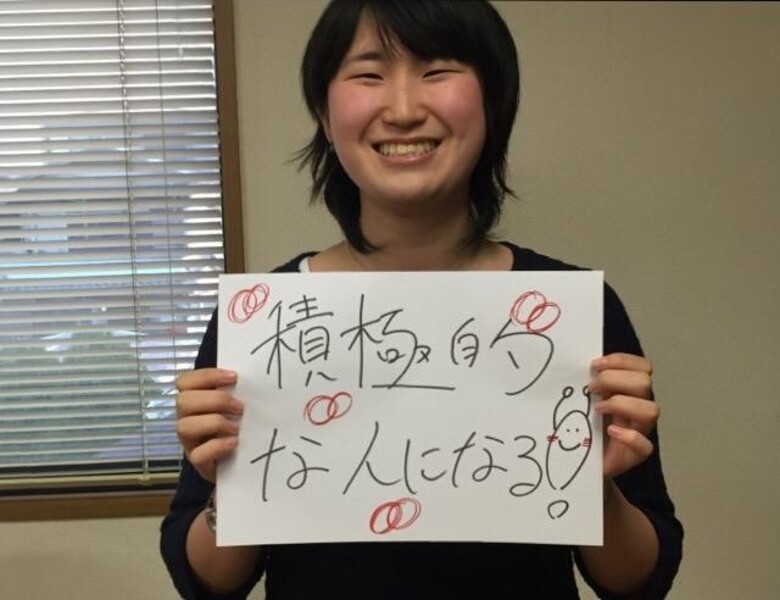 積極的
な人になる!